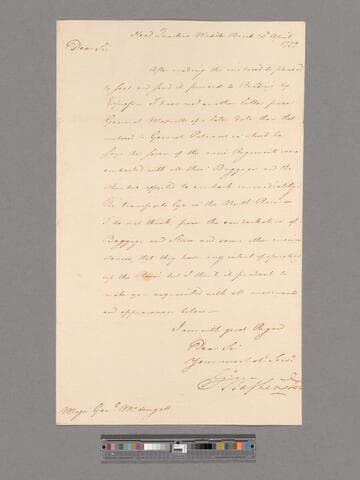 Head Quarters Middle Brook 20 April
1779
Dear Sir
After reading the enclosed be pleased
to seal and send it forward to
Express. I have not another letter from
General Maxwell of a later date than that
enclosed to General
says the seven of the nine Regiments were
embarked with all their Baggage and the
other two expected to embark immediately.
The transports lye in the North River—
I do not think, from the embarkation of
Baggage and Stores and some other circum
stances, that they have any intent of operating
up the River, but I think it prudent to
make you acquainted with all movements
and appearances below—
I am with great Regard
Dear Sir
Your most Ob. Serv.
G Washington
Major Gen.l McDougall